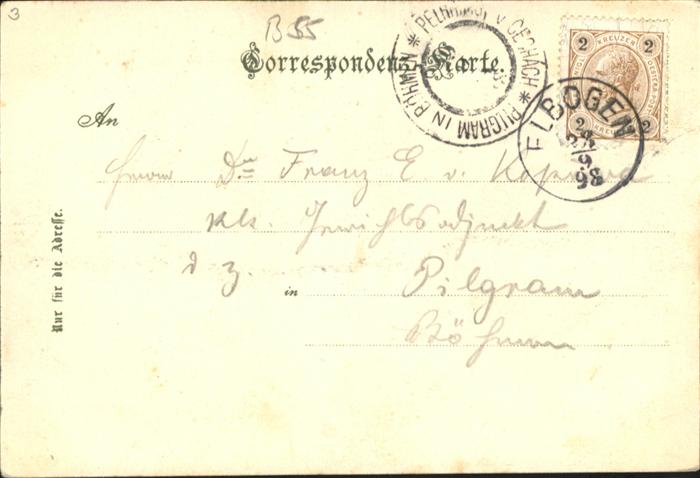 3
B 55
Correspondenz-Karte.
PELHŘIMOV V ČECHÁCH * PILGRAM IN BÖHMEN *
2 KREUZER 2
2 2
ELBOGEN
9
98
An
Herrn Dr. Franz E v.
kk. Gerichtsadjunkt
d Z. in Pilgram
Böhmen
Nur für die Adresse.